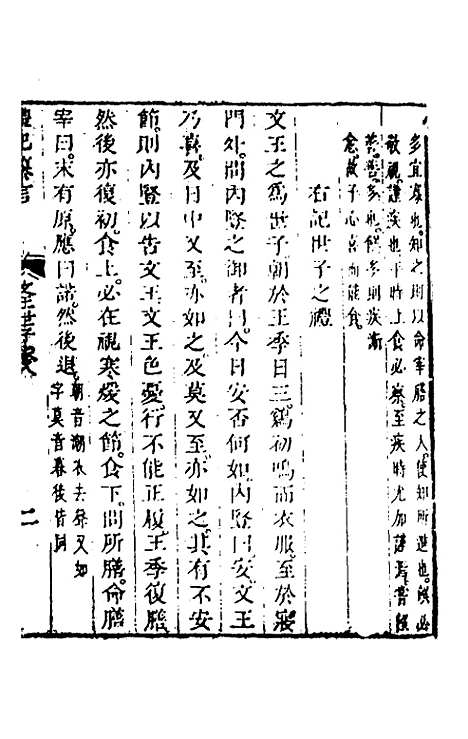 多宜處也知之則以命宰膳之人使知所進也饌必
敬視謹疾也平時上食必察至疾時尤加謹焉嘗饌
善嘗多也饌多則疾漸
愈故子心喜而能食
右記世子之禮
文王之爲世子朝於王季日三雞初鳴而衣服至於寢
門外問內豎之御者曰今日安否何如內豎曰安文王
乃喜及日中又至亦如之及莫又至亦如之其有不安
節則內豎以告文王文王色憂行不能正履王季復膳
然後亦復初食上必在視寒煖之節食下問所膳命膳
宰曰末有原應曰諾然後退
朝音潮衣去聲又如
字莫音暮後皆同
禮記纂言
文王世子
二